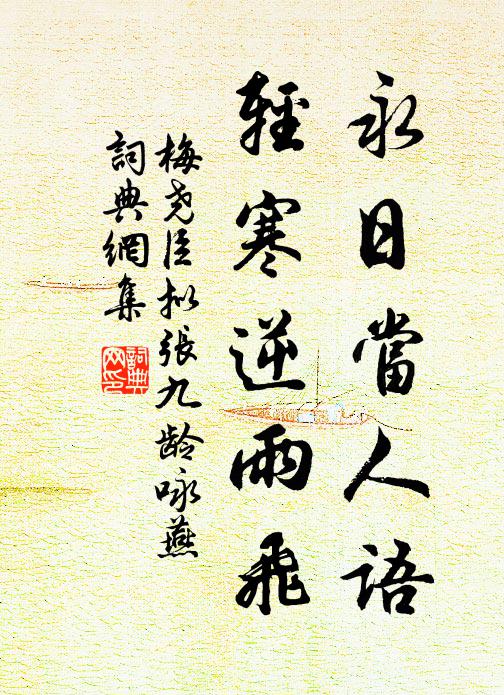 永日當人語
輕寒逆雨飛
梅尧臣拟張九龄咏燕
詞典網集
詞典网印